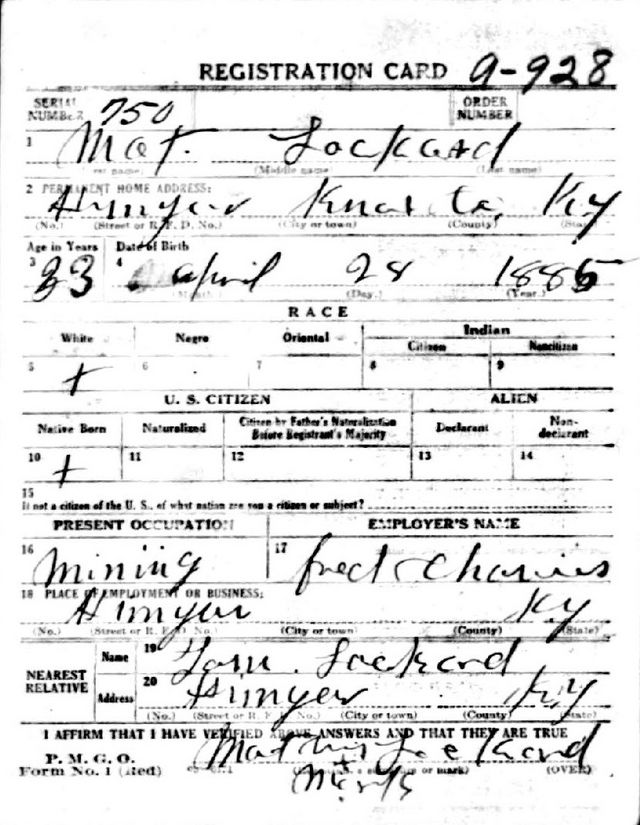 REGISTRATION CARD 9-928
SERIAL NUMBER 750 ORDER NUMBER
1 Mat. Lockard
(First name) (Middle name) (Last name)
2 PERMANENT HOME ADDRESS:
Hinyer Knox Co. Ky
(No.) (Street or R. F. D. No.) (City or town) (County) (State)
Age in Years Date of Birth
3 33 4 April 28 1885
(Month.) (Day.) (Year.)
RACE
White Negro Oriental Indian
Citizen Noncitizen
5 + 6 7 8 9
U. S. CITIZEN ALIEN
Native Born Naturalized Citizen by Father's Naturalization Before Registrant's Majority Declarant Non-declarant
10 + 11 12 13 14
15
If not a citizen of the U. S., of what nation are you a citizen or subject?
PRESENT OCCUPATION EMPLOYER'S NAME
16 Mining 17 fred
18 PLACE OF EMPLOYMENT OR BUSINESS:
Hinyer Ky
(No.) (Street or R. F. D. No.) (City or town) (County) (State)
NEAREST RELATIVE Name 19 Tom. Lockard
Address 20 Hinyer Ky
(No.) (Street or R. F. D. No.) (City or town) (County) (State)
I AFFIRM THAT I HAVE VERIFIED ABOVE ANSWERS AND THAT THEY ARE TRUE
P. M. G. O.
Form No. 1 (Red) Lockard
(Registrant's signature or mark) (OVER)